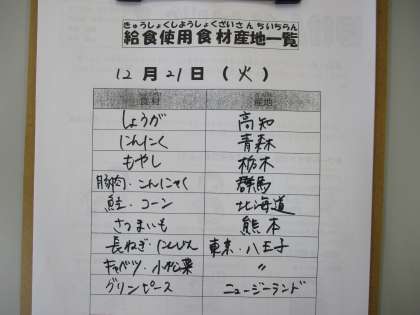 きゅうしょくしようしょくざいさんちいちらん
給食使用食材産地一覧
12月21日(火)
食材 産地
しょうが 高知
にんにく 青森
もやし 栃木
豚肉・こんにゃく 群馬
鮭・コーン 北海道
さつまいも 熊本
長ねぎ・にんじん 東京・八王子
キャベツ・小松菜 〃
グリンピース ニュージーランド